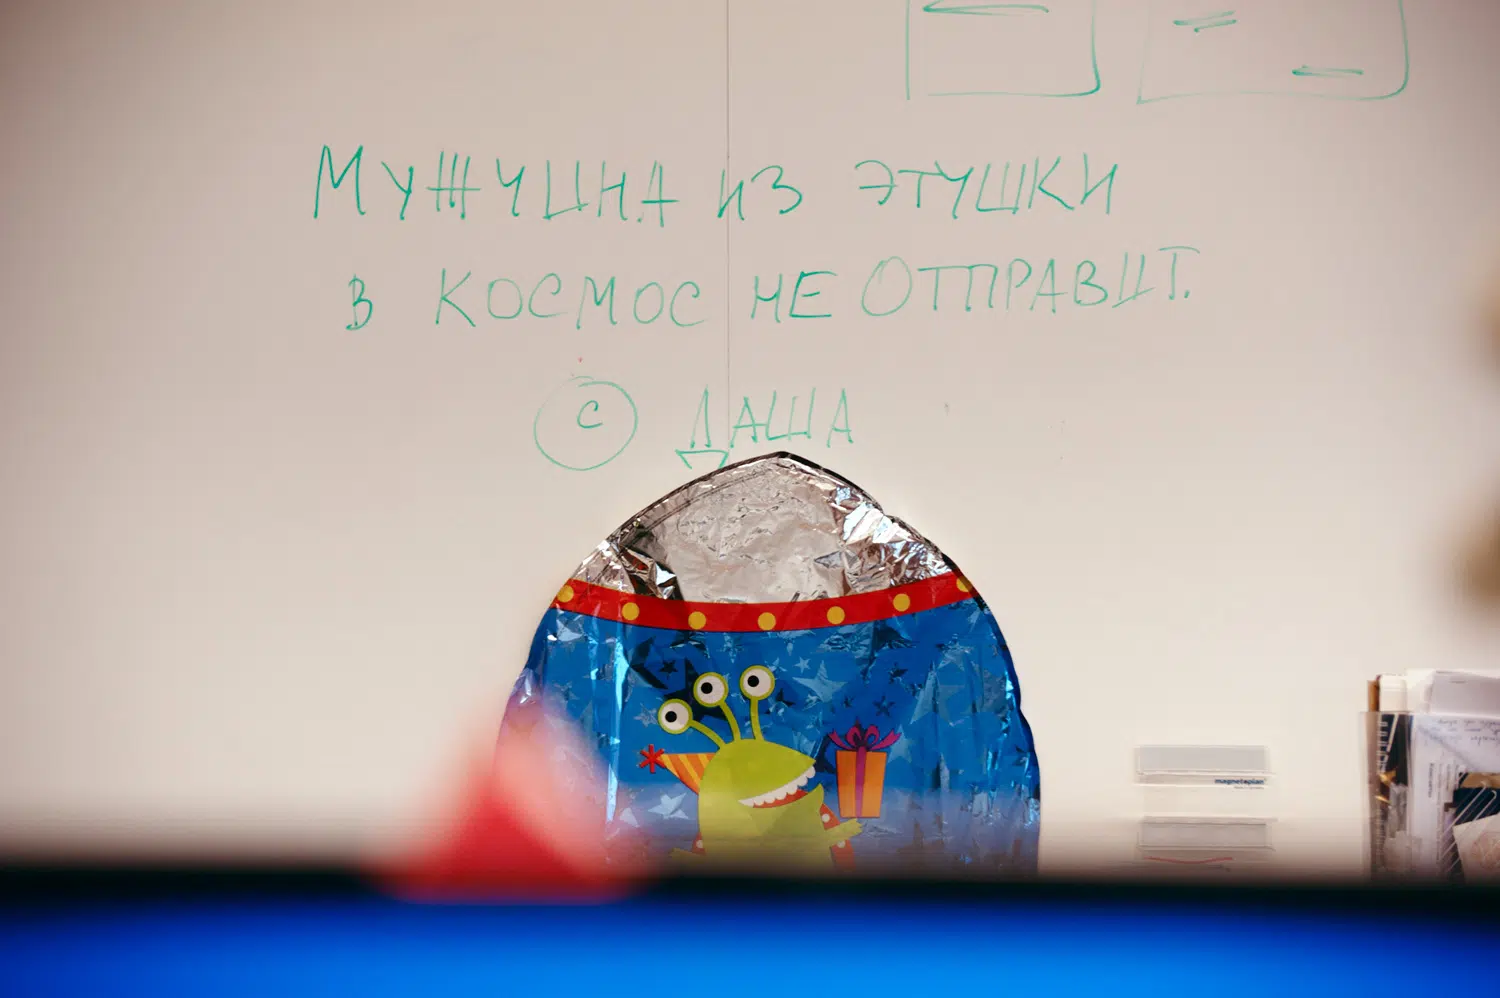 МУЖЧИНА ИЗ ЭТУШКИ
В КОСМОС НЕ ОТПРАВИТ.
© ДАША
magnetoplan